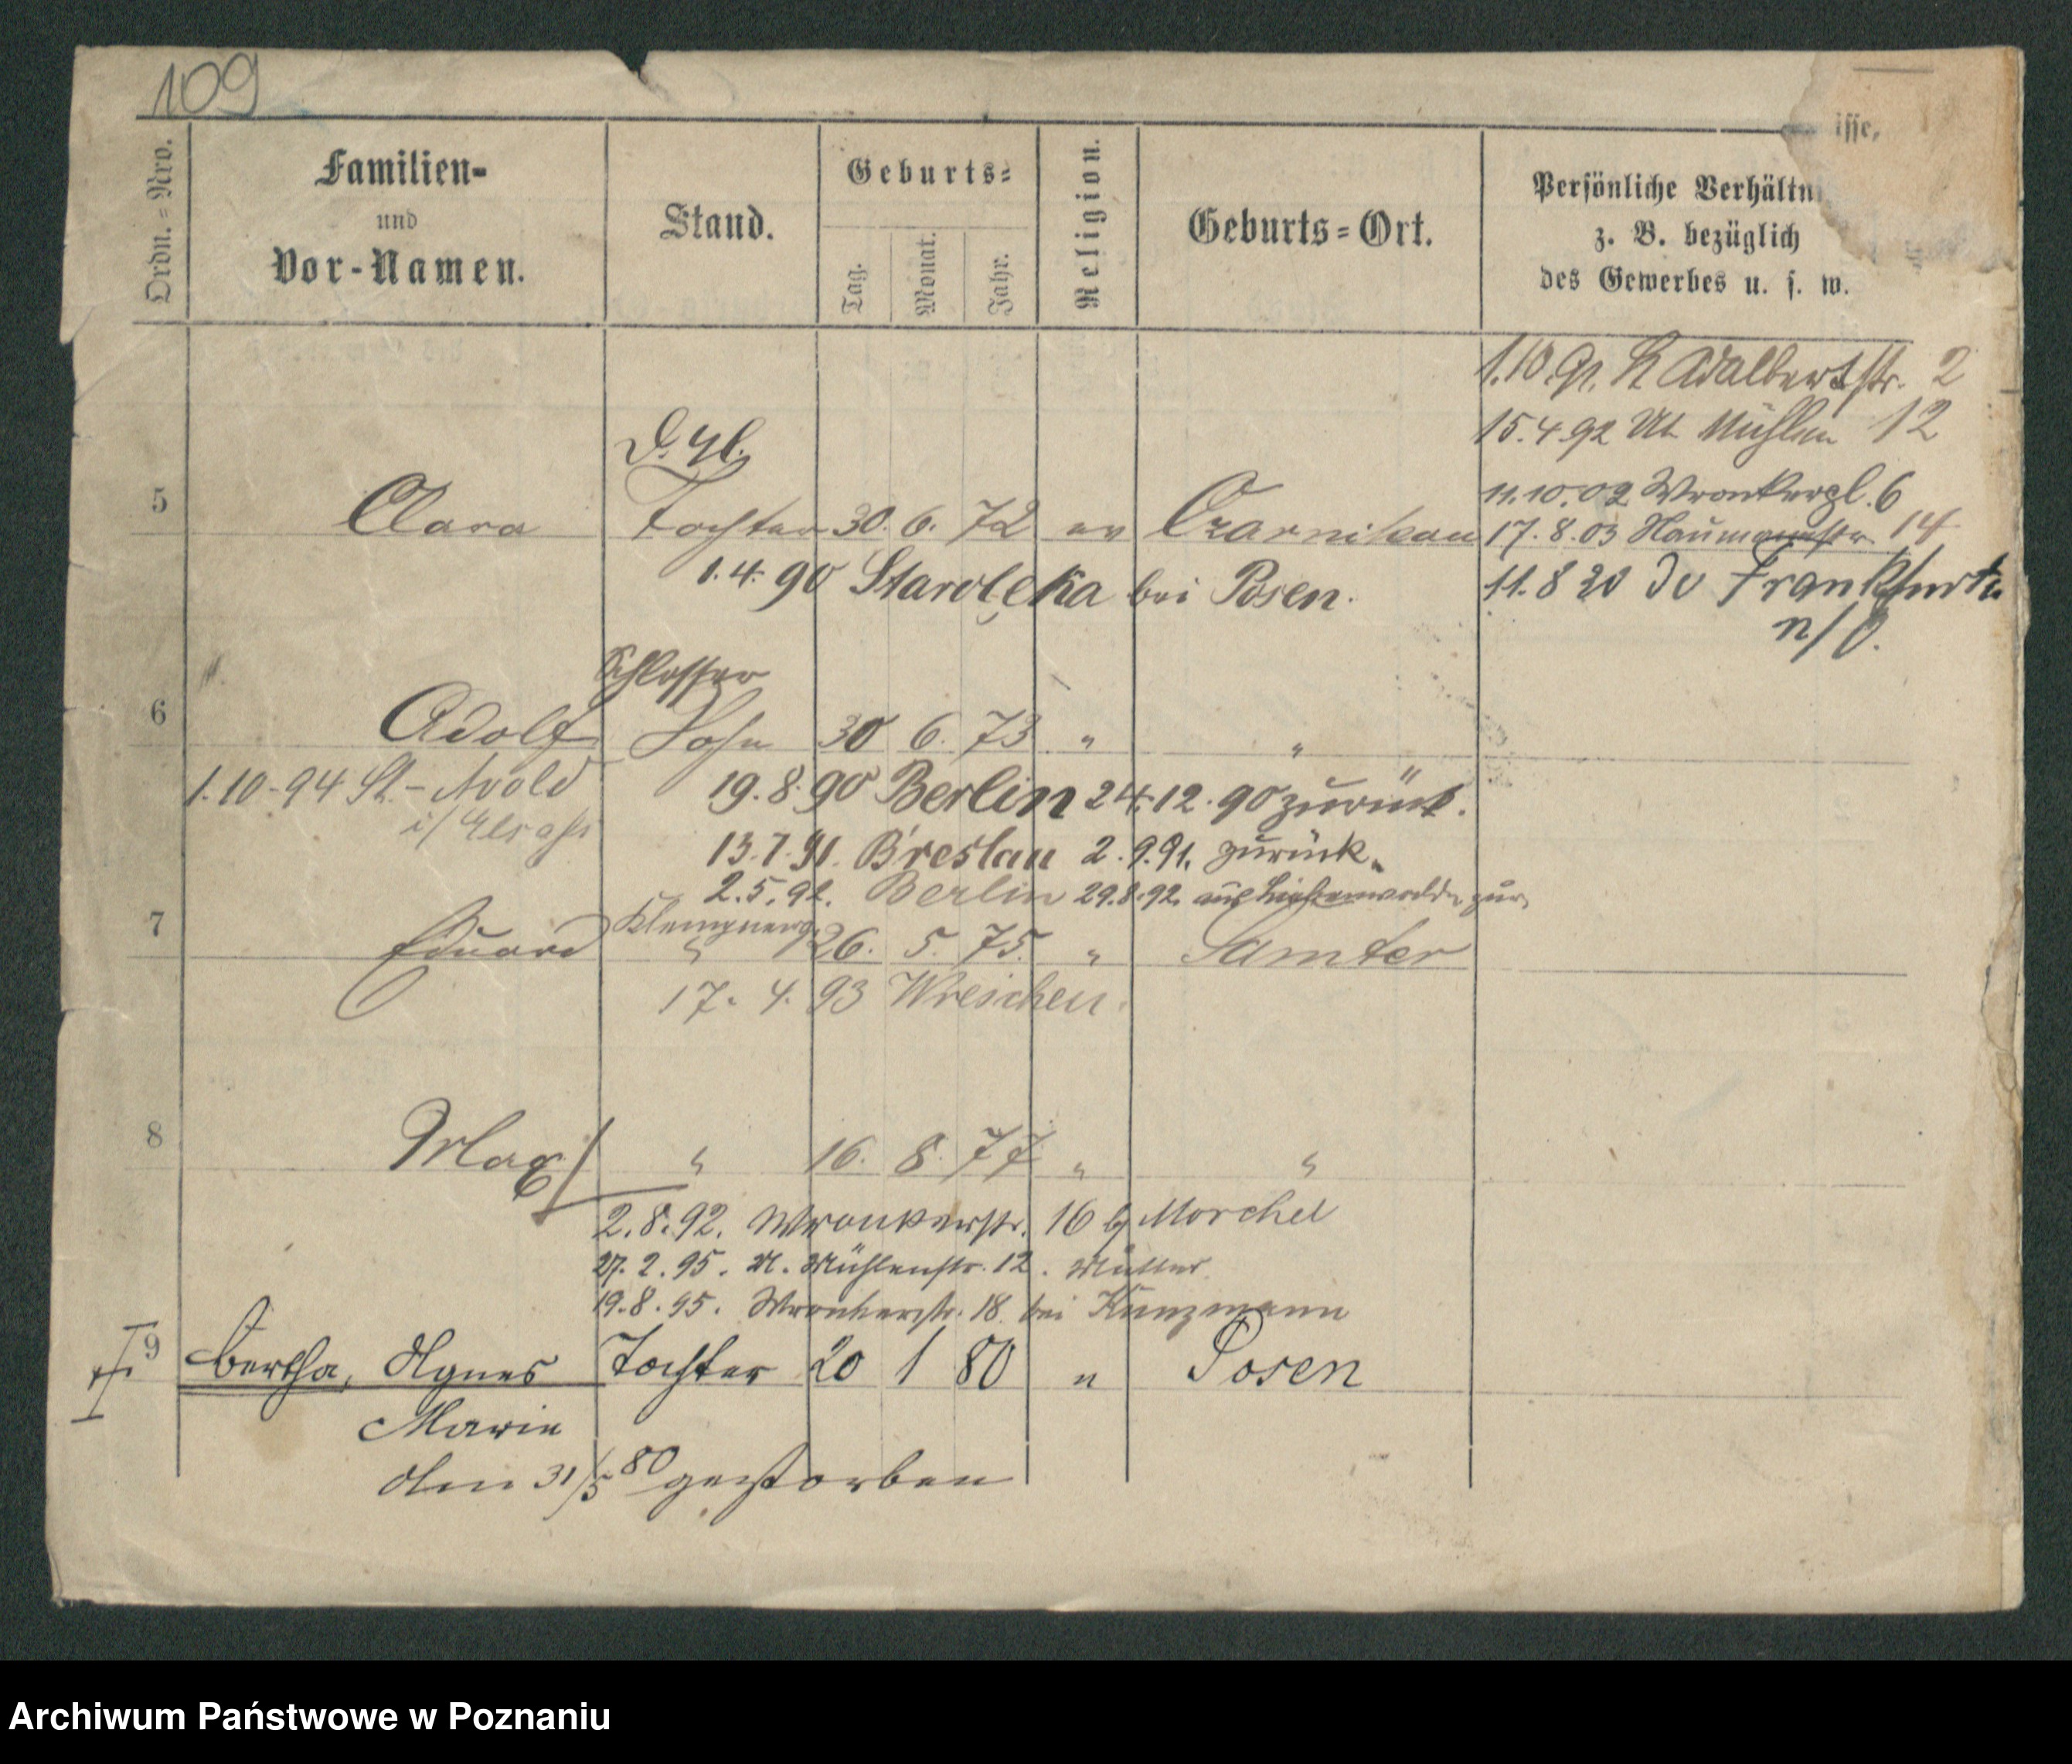 109
isse,
Ordn.=Nro.
Familien-
und
Vor-Namen.
Stand.
Geburts=
Tag.
Monat.
Jahr.
Religion.
Geburts=Ort.
Persönliche Verhältni
z. B. bezüglich
des Gewerbes u. s. w.
1.10.91. Adalbertstr. 2
15.4.92 Mühlen 12
11.10.02 Wronkerpl. 6
17.8.03 Naumannstr. 14
5 Clara Tochter 30. 6. 72 ev Czarnikau
1.4.90 Starolęka bei Posen.
11.8 20 Frankfurt
Schlosser
6 Adolf Sohn 30 6. 73 " "
1.10.94 St.-Avold
i/Elsass
19.8.90 Berlin 24.12.90 zurück.
13.7.91. Breslau 2.9.91. zurück.
2.5.92. Berlin 29.8.92. aus zur.
Klempner
7 Eduard " 26. 5. 75. " Samter
17. 4. 93 Wreschen.
8 Max " 16. 8. 77 " "
2.8.92. Wronkerstr. 16 Morchel
27.2.95. Mühlenstr. 12. Mutter
19.8.95. Wronkerstr. 18. bei Kunzmann
9 Bertha, Agnes Tochter 20 1 80 " Posen
Marie
Am 31/5 80 gestorben
Archiwum Państwowe w Poznaniu